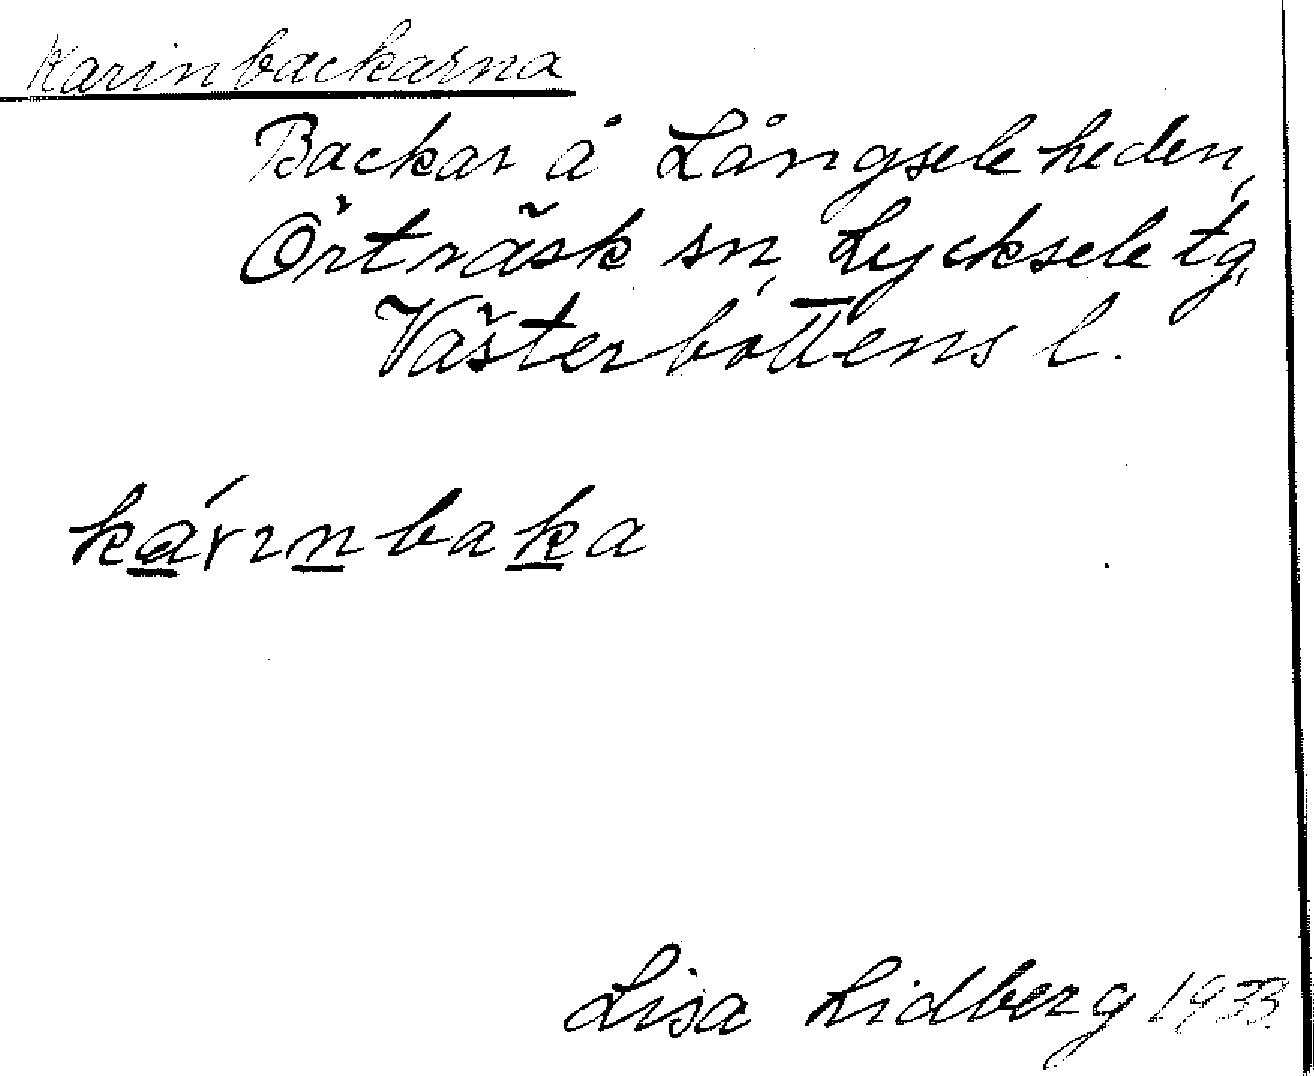 Karinbackarna
Backar å Långseleheden,
Örträsk sn, Lycksele tg,
Västerbottens l.
kárinbaka
Lisa Lidberg 1933.